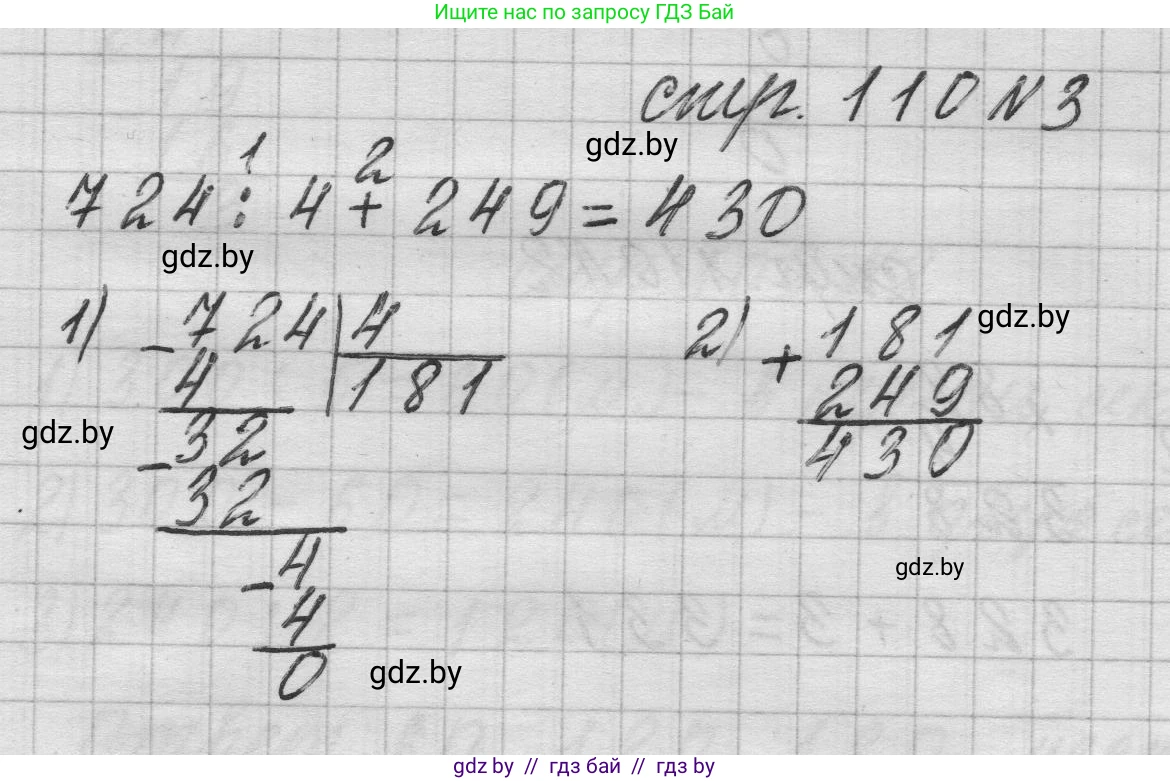 Ищите нас по запросу ГДЗ Бай
стр. 110 N 3
gdz.by
1 2
724 : 4 + 249 = 430
gdz.by
1) - 724 | 4
4 | 181
- 32
32
- 4
4
0
2) + 181
249
430
gdz.by
gdz.by
gdz.by
gdz.by
gdz.by // гдз бай // гдз by